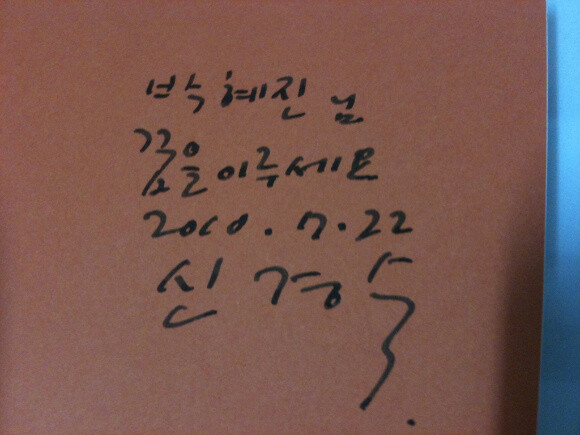 박혜진 님
꿈을 이루세요
2010. 7. 22
신경숙